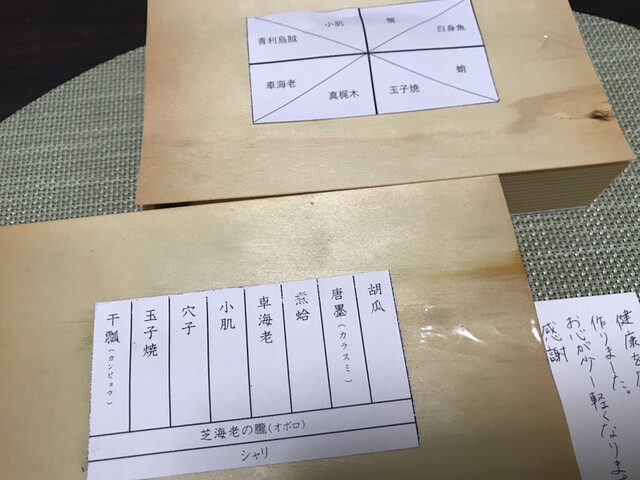 小肌
青利烏賊
白身魚
車海老
真梶木
玉子焼
蛤
胡瓜
唐墨(カラスミ)
煮蛤
車海老
小肌
穴子
玉子焼
干瓢(カンピョウ)
芝海老の朧(オボロ)
シャリ
健康を
作りました。
お心が少し軽くなりま
感謝